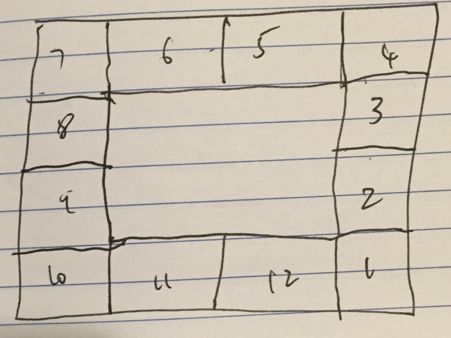 7 6 5 4
8 3
9 2
10 11 12 1